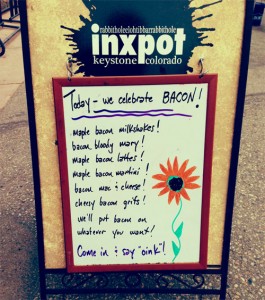 inxpot
keystone colorado
Today - we celebrate BACON!
maple bacon milkshakes!
bacon bloody mary!
maple bacon lattes!
maple bacon martini!
bacon mac & cheese!
cheesy bacon grits!
we'll put bacon on
whatever you want!
Come in & say "oink"!